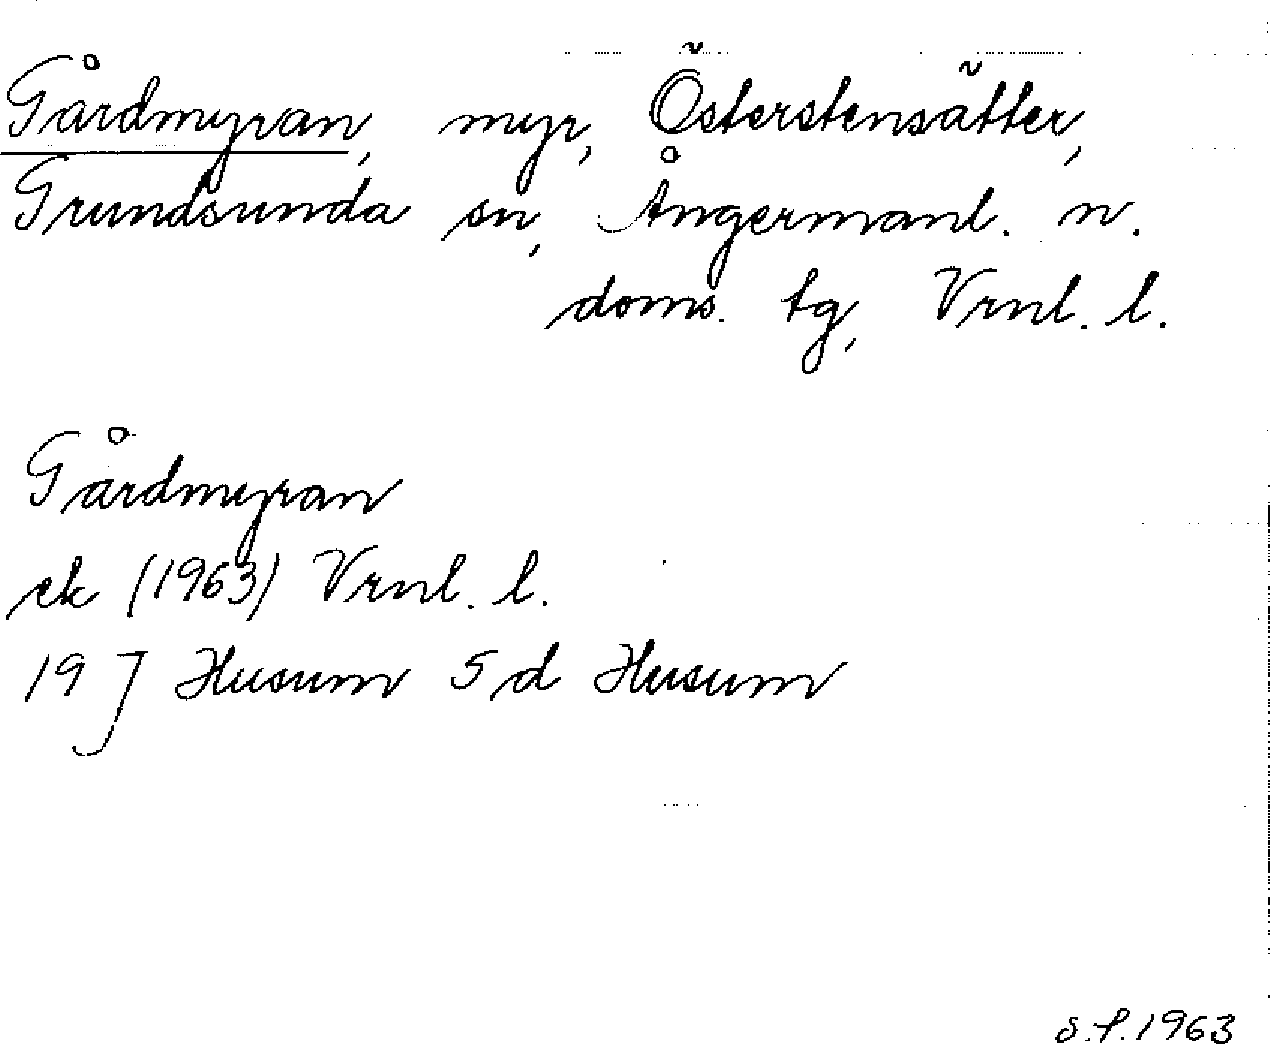 Gårdmyran, myr, Österstensätter,
Grundsunda sn, Ångermanl. n.
doms. tg, Vrnl. l.
Gårdmyran
ek (1963) Vrnl. l.
19 J Husum 5 d Husum
S.f. 1963